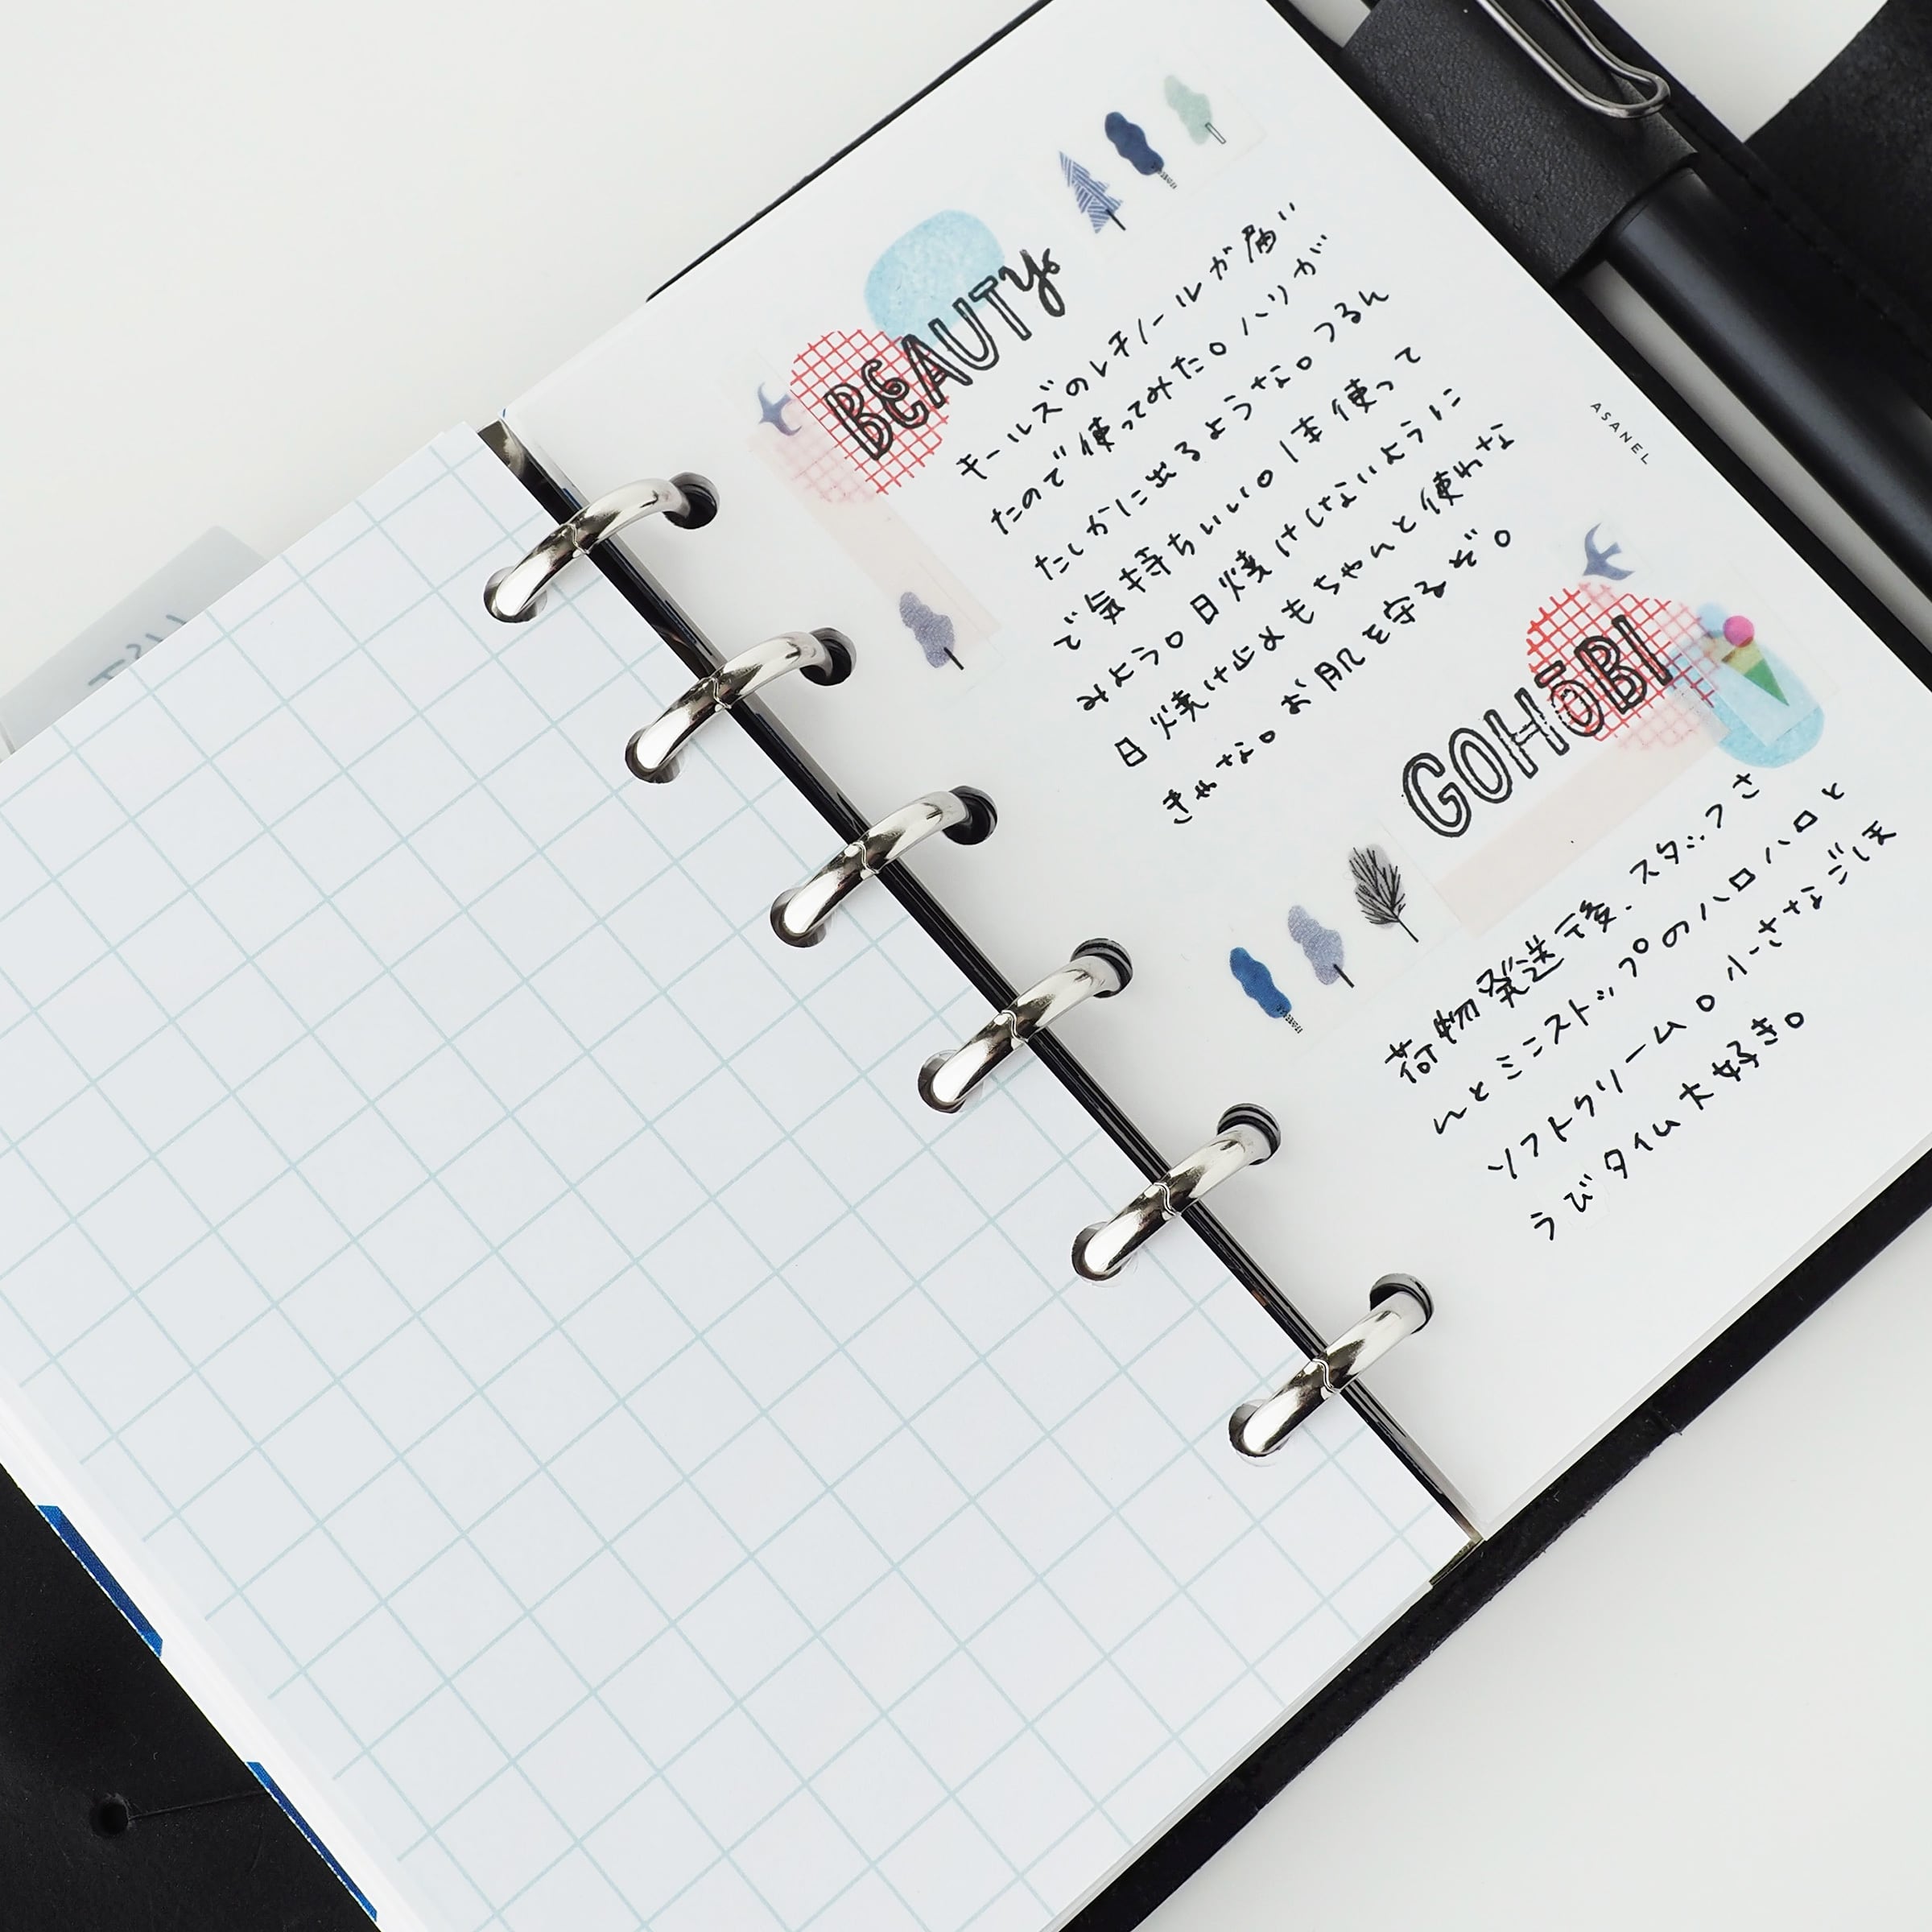 BEAUTY
キールズのレチノールが届い
たので使ってみた。ハリが
たしかに出るような。つるん
で気持ちいい。1本使って
みよう。日焼けしないように
日焼け止めもちゃんと使わな
きゃな。お肌を守るぞ。
ASANEL
GOHŌBI
荷物発送後、スタッフさ
んとミニストップのハロハロと
ソフトクリーム。小さなごほ
うびタイム大好き。